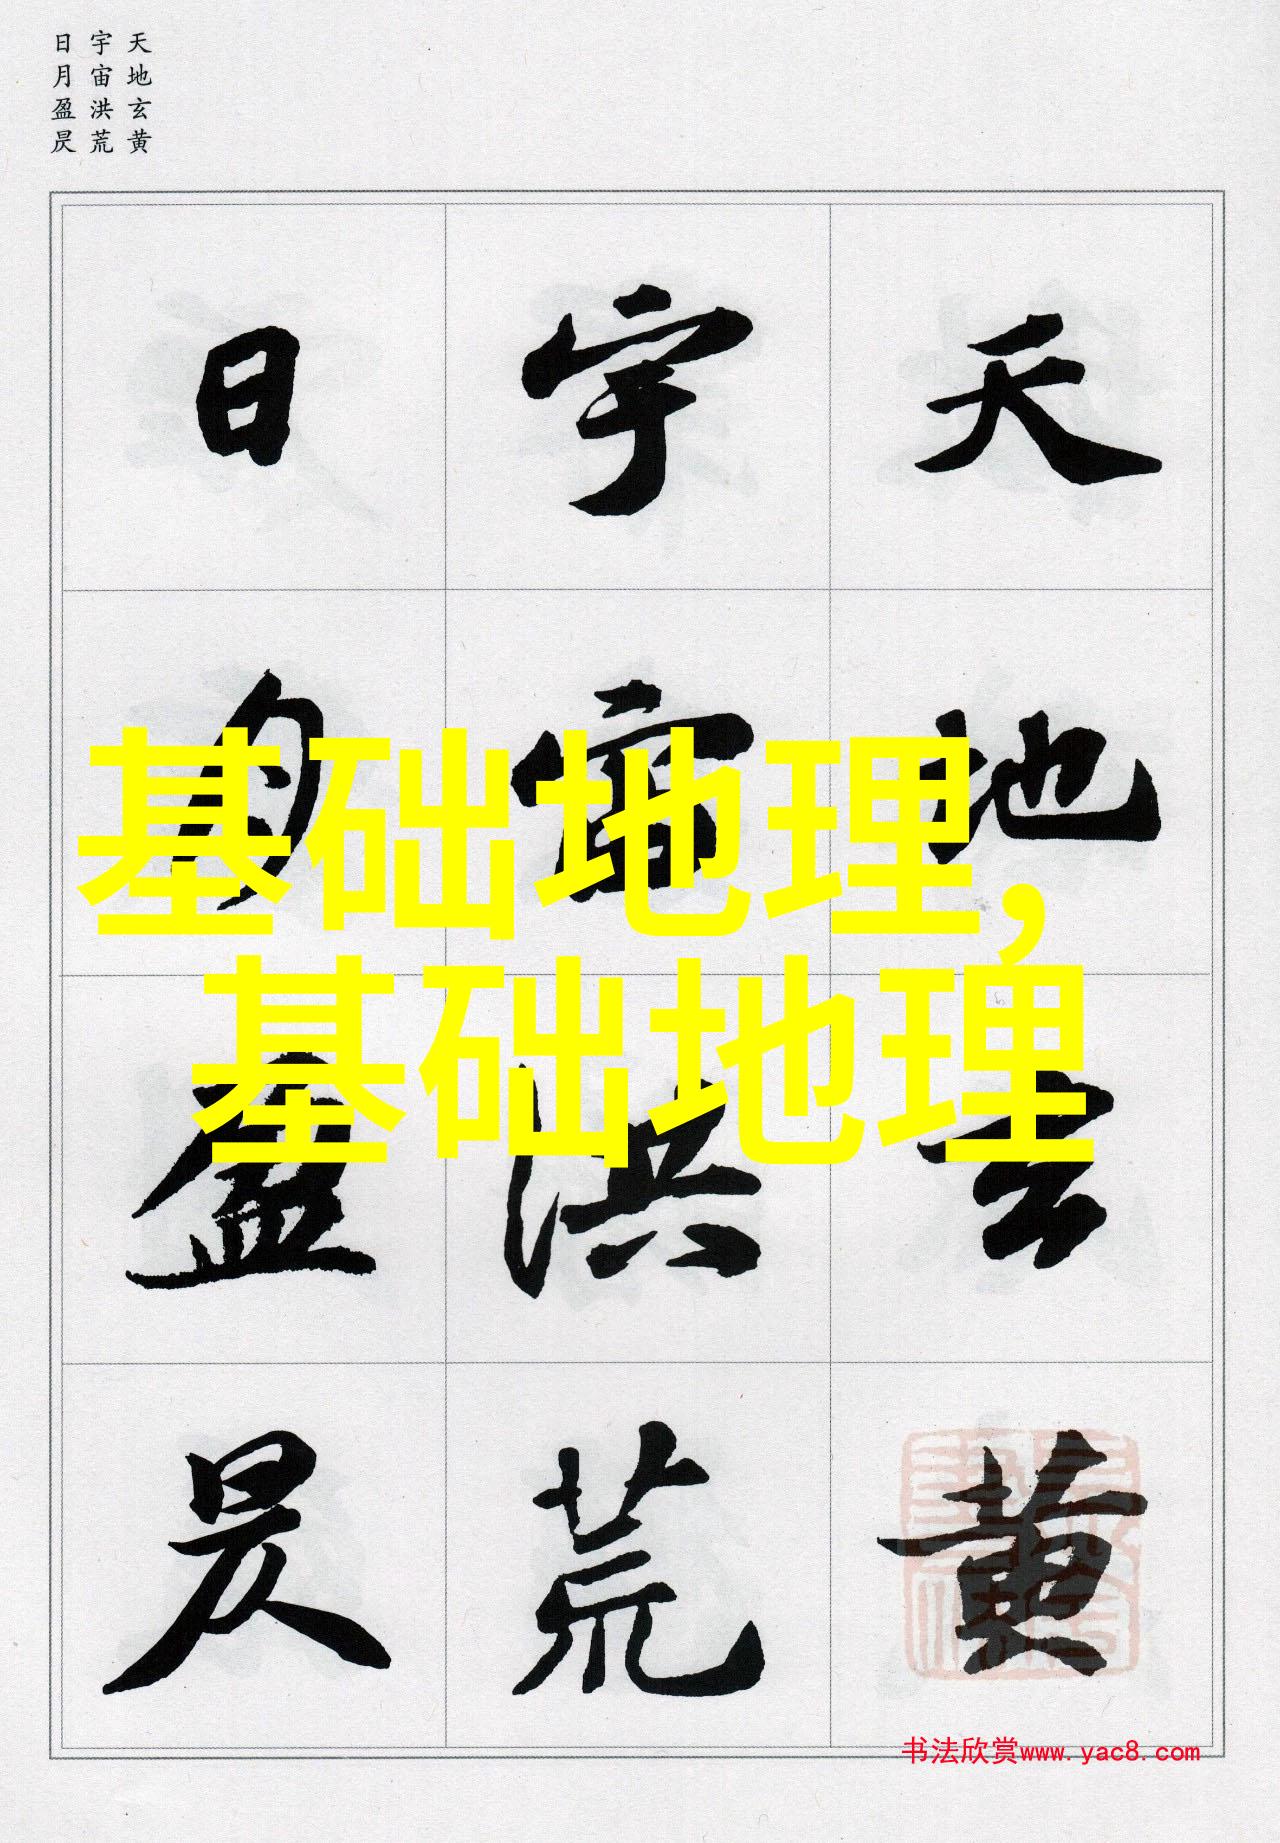 天地玄黄
宇宙洪荒
日月盈昃
天地玄黄
宇宙洪荒
日月盈昃
基础地理,
基础地理
书法欣赏www.yac8.com